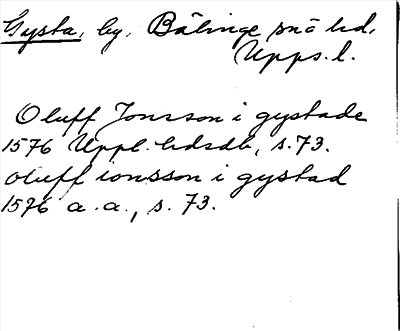 Gysta, by, Bälinge snö hd,
Upps. l.
Oluff Jonsson i gystade
1576 Uppl. hdsdb, s. 73.
oluff ionsson i gystad
1576 a. a., s. 73.